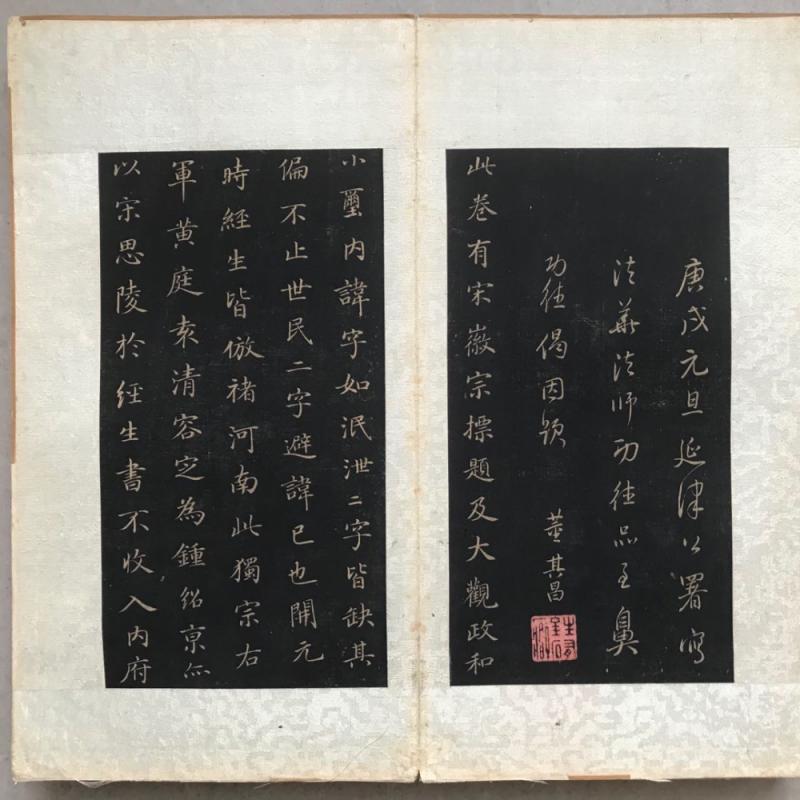 庚戌元旦延津公署寫
法華法師功德品至鼻
功德偈因題
董其昌
此卷有宋徽宗標題及大觀政和
小璽内諱字如泯泄二字皆缺其
偏不止世民二字避諱已也開元
時經生皆倣褚河南此獨宗右
軍黄庭素清容定為鍾紹京亦
以宋思陵於經生書不收入内府